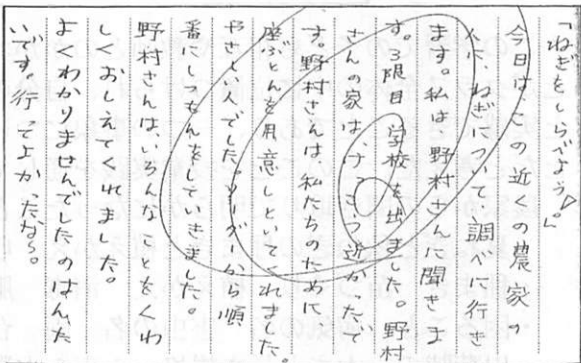 「ねぎをしらべよう♪。」
今日は、この近くの農家の
人に、ねぎについて、調べに行き
ます。私は野村さんに聞きま
す。3限目学校を出ました。野村
さんの家は、けっこう近かったで
す。野村さんは私たちのために
座ぶとんを用意しといてくれました。
やさしい人でした。リーダーから順
番にしつもんをしていきました。
野村さんは、いろんなことをくわ
しくおしえてくれました。
よくわかりませんでしたのはんた
いです。行ってよかったなら。